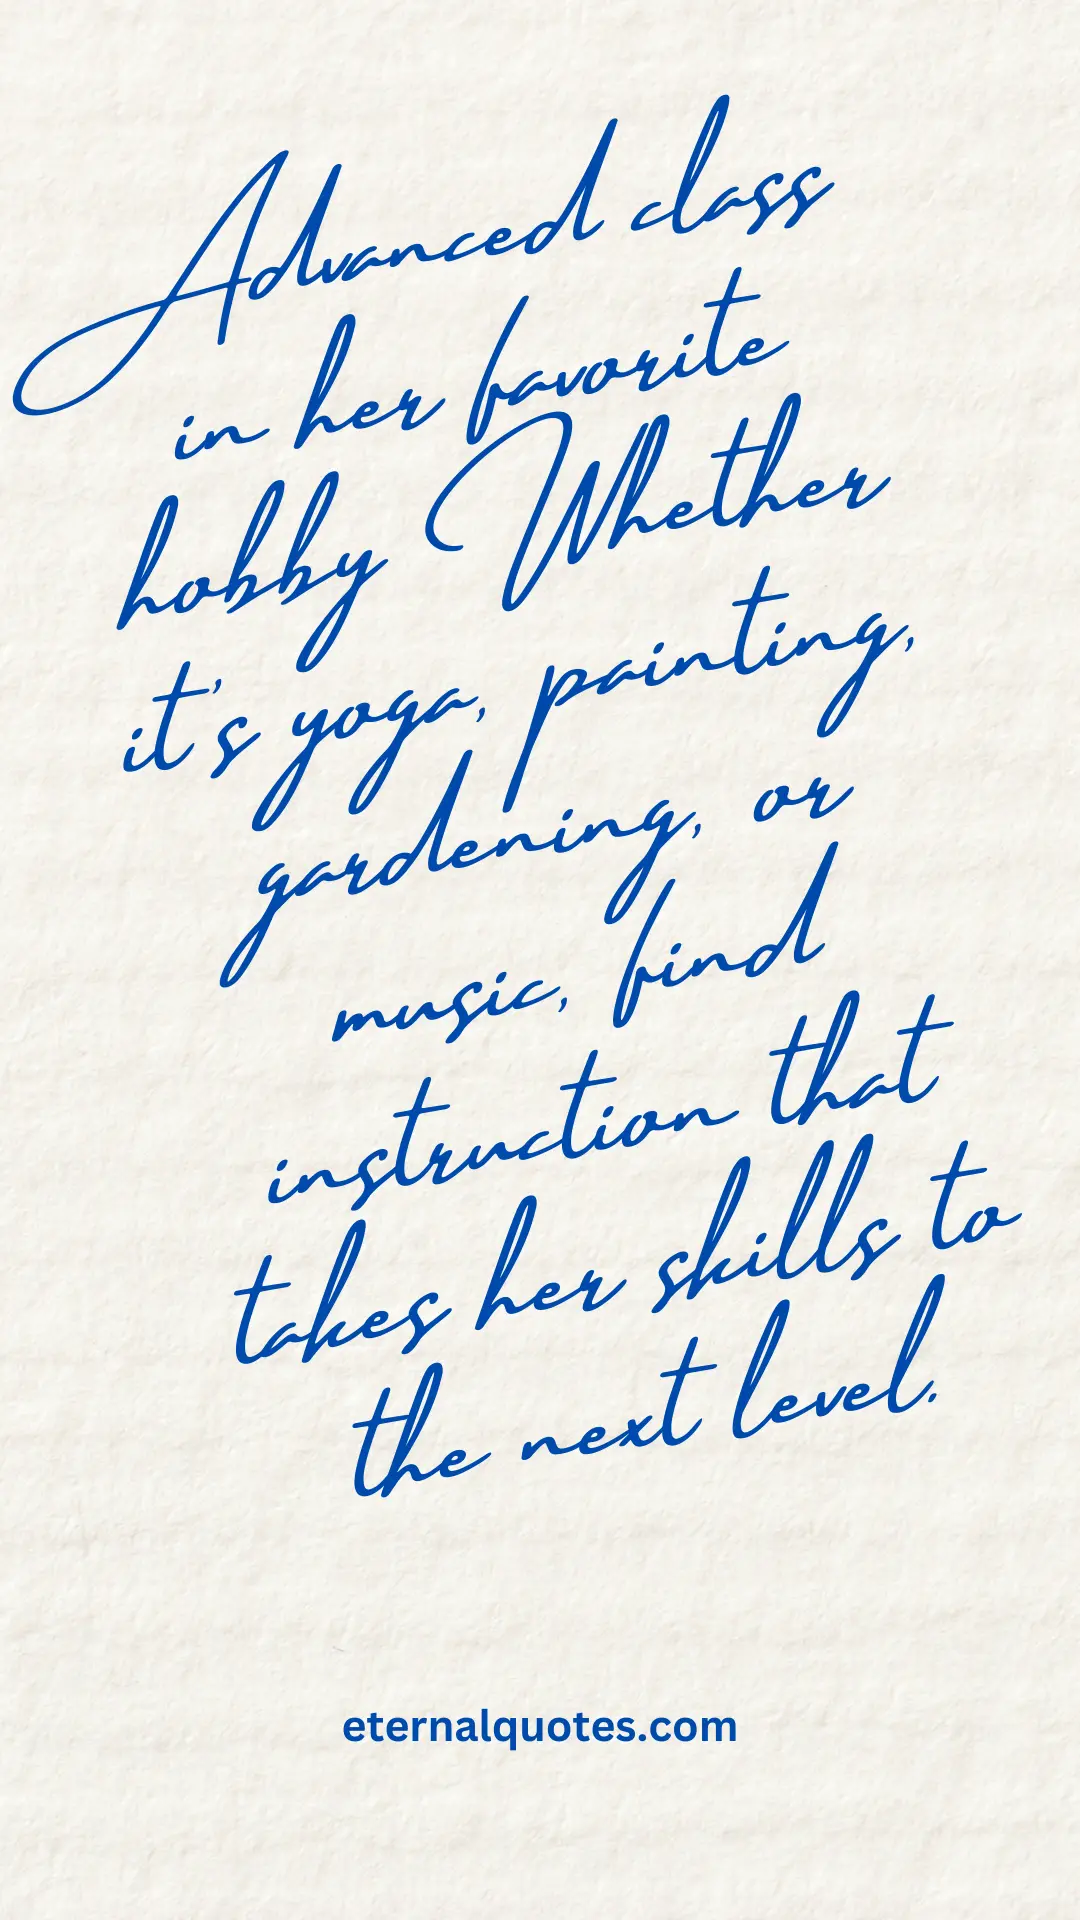 Advanced class
in her favorite
hobby Whether
it's yoga, painting,
gardening, or
music, find
instruction that
takes her skills to
the next level.
eternalquotes.com